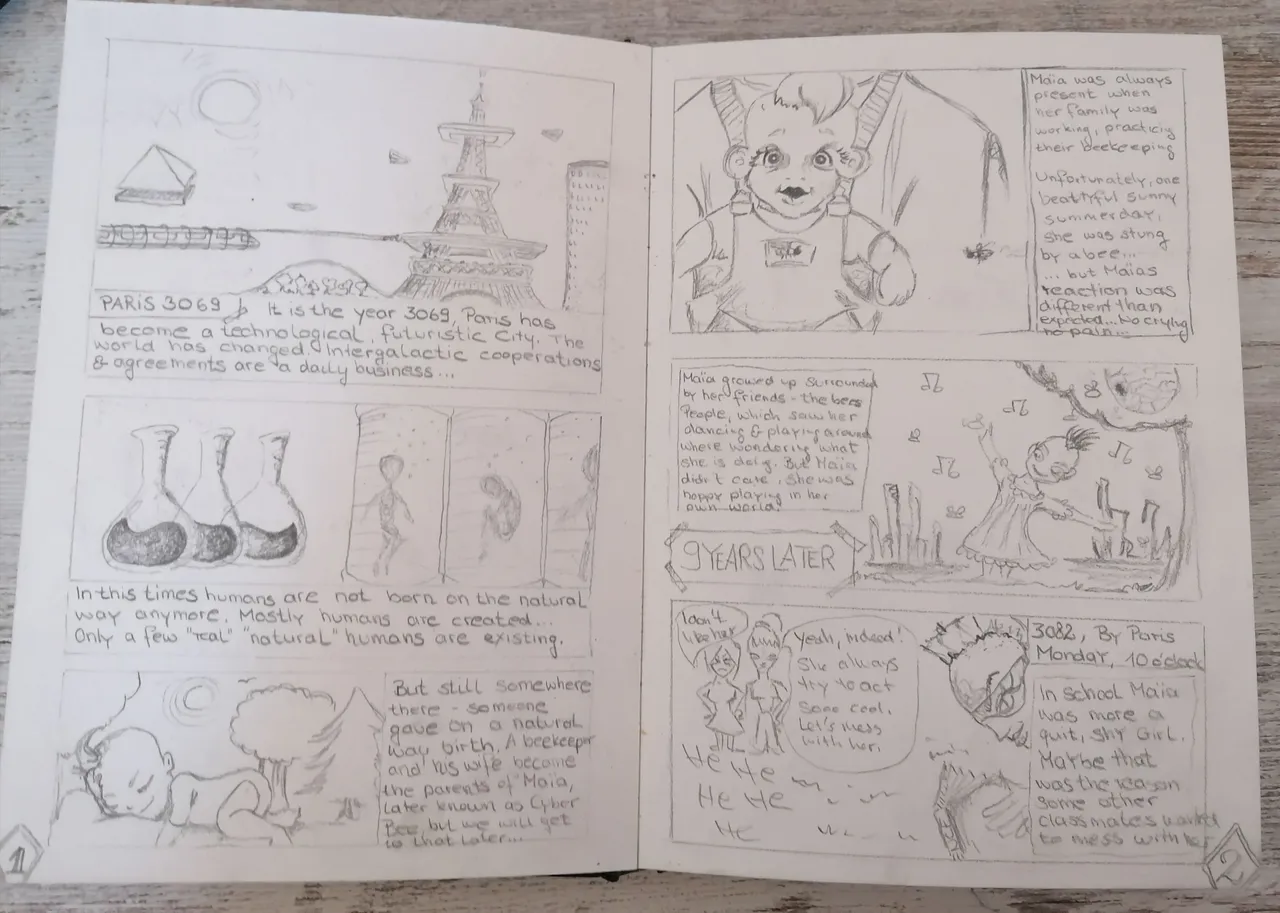 PARIS 3069
It is the year 3069, Paris has
become a technological, futuristic City. The
world has changed. Intergalactic cooperations
& agreements are a daily business...
In this times humans are not born on the natural
way anymore. Mostly humans are created...
Only a few "real" "natural" humans are existing.
But still somewhere
there - someone
gave on a natural
way birth. A beekeeper
and his wife become
the parents of Maïa,
later known as Cyber
Bee but we will get
to that later...
1
Maïa was always
present when
her family was
working, practicing
their beekeeping
Unfortunately, one
beautyful sunny
summerday,
she was stung
by a bee...
... but Maïas
reaction was
different than
expected... No crying
no pain...
Maïa growed up surrounded
by her friends - the bees
People, which saw her
dancing & playing around
where wondering what
she is doing. But Maïa
didn't care, she was
happy playing in her
own world!
9 YEARS LATER
I don't
like her
Yeah, indeed!
She always
try to act
sooo cool.
Let's mess
with her.
He He
He He
He
3082, By Paris
Monday, 10 o'clock
In school Maïa
was more a
quit, shy Girl.
Maybe that
was the reason
some other
classmates wanted
to mess with her
2